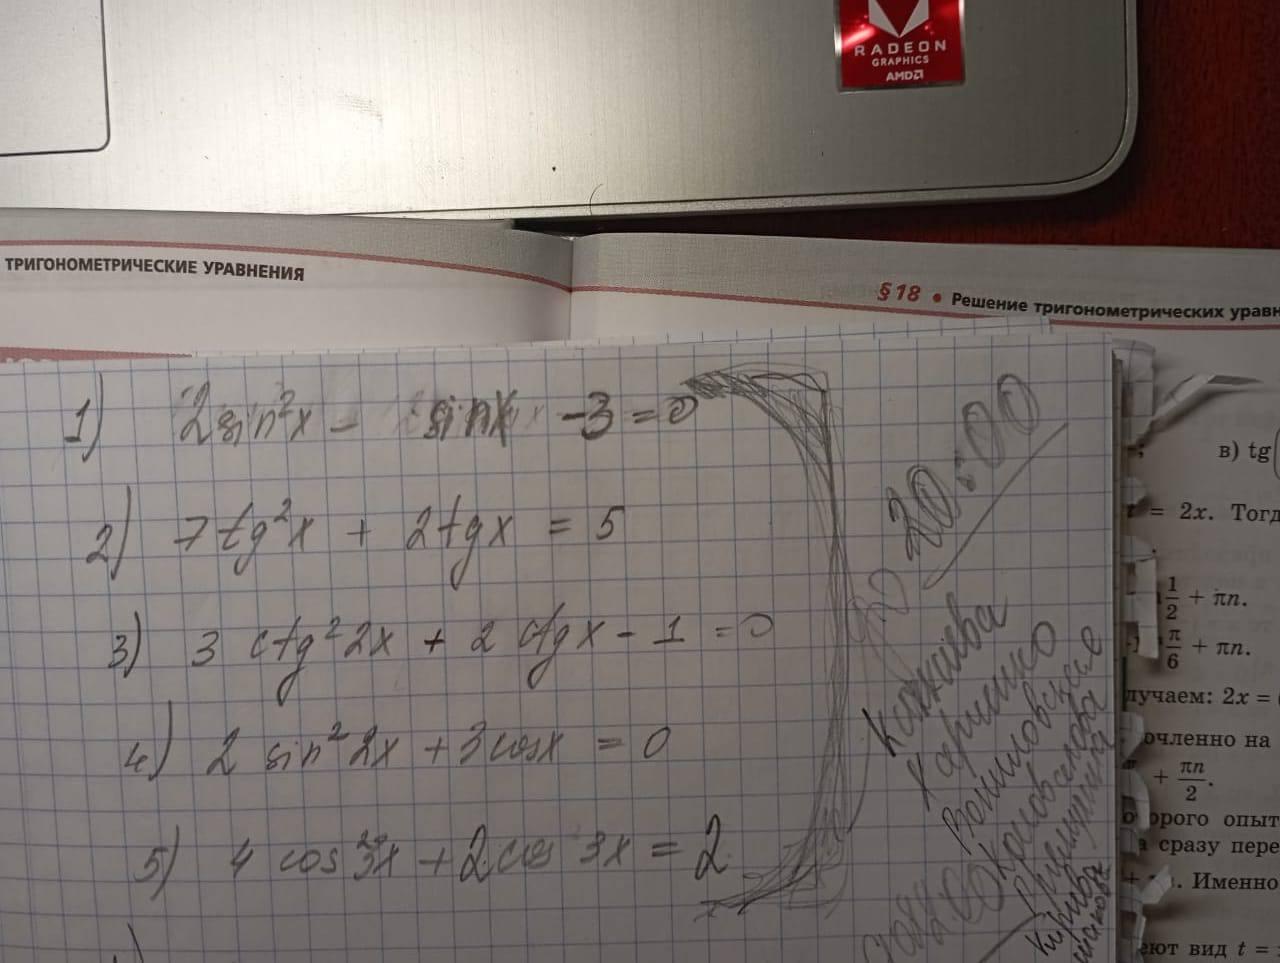 RADEON
GRAPHICS
AMD
ТРИГОНОМЕТРИЧЕСКИЕ УРАВНЕНИЯ
§ 18 • Решение тригонометрических уравн
1) 2sin²x - sinx -3=0
2) 7tg²x + 2tgx = 5
3) 3 ctg²2x + 2 ctgx - 1 =0
4) 2 sin²2x +3cosx = 0
5) 4 cos²3x +2cos 3x = 2
до 20:00
Карпенко
Коновалова
в) tg(
t = 2x. Тогд
1/2 + πn.
π/6 + πn.
лучаем: 2x =
очленно на
+ πn/2.
орого опыт
а сразу пере
. Именно
еют вид t =